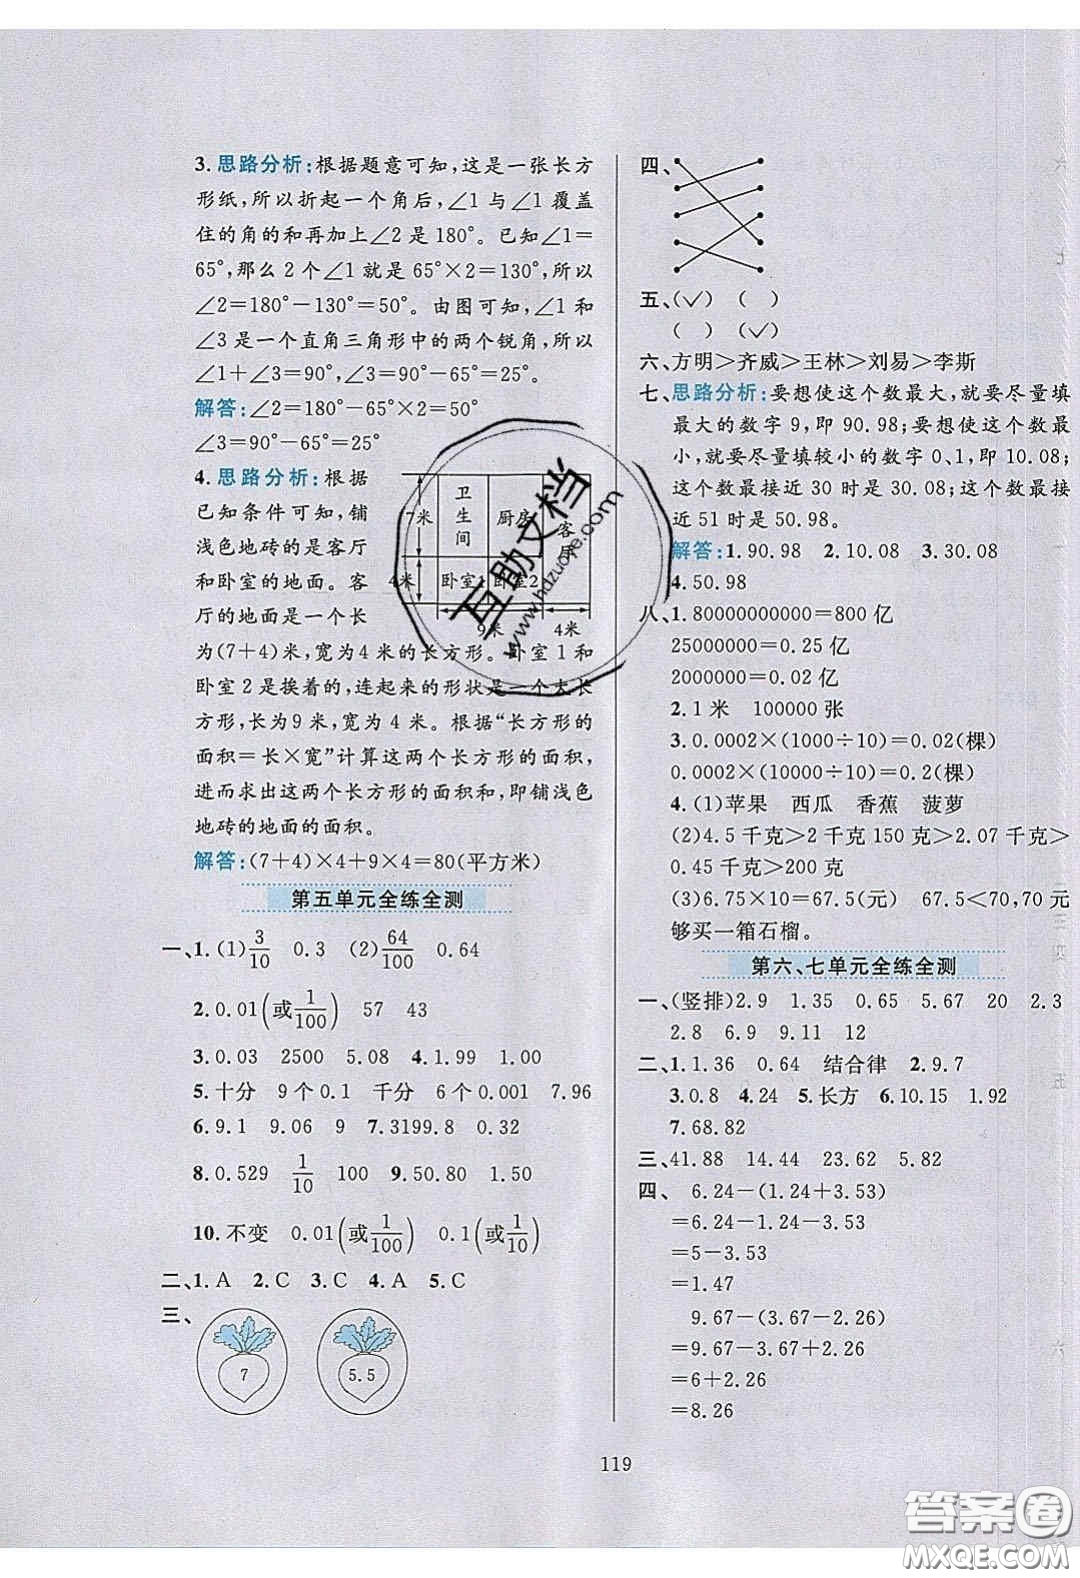 3.思路分析:根据题意可知,这是一张长方
形纸,所以折起一个角后,∠1 与∠1 覆盖
住的角的和再加上∠2 是 180°。已知∠1=
65°,那么 2 个∠1 就是 65°×2=130°,所以
∠2=180°-130°=50°。由图可知,∠1 和
∠3 是一个直角三角形中的两个锐角,所以
∠1+∠3=180°-90°=90°,
解答:∠2=180°-65°×2=50°
∠3=90°-65°=25°
4.思路分析:根据
已知条件可知,铺
浅色地砖的是客厅
和卧室的地面。客
厅的地面是一个长
为(7+4)米,宽为 4 米的长方形。卧室 1 和
卧室 2 是挨着的,连起来的形状是一个大长
方形,长为 9 米,宽为 4 米。根据“长方形的
面积=长×宽”计算这两个长方形的面积,
进而求出这两个长方形的面积和,即铺浅色
地砖的地面的面积。
7米
卫生间
厨房
客厅
4米
卧室1
卧室2
9米
4米
解答:(7+4)×4+9×4=80(平方米)
第五单元全练全测
一、1.(1)3/10 0.3 (2)64/100 0.64
2.0.01(或1/100) 57 43
3.0.03 2500 5.08 4.1.99 1.00
5.十分 9个0.1 千分 6个0.001 7.96
6.9.1 9.06 9 7.3199.8 0.32
8.0.529 1/10 100 9.0.80 1.50
10.不变 0.01(或1/100) 0.1(或1/10)
二、1.A 2.C 3.C 4.A 5.C
三、
7
5.5
四、
五、(✓) ( )
( ) (✓)
六、方明>齐威>王林>刘易>李斯
七、思路分析:要想使这个数最大,就要尽量填
最大的数字 9,即 90.98;要想使这个数最
小,就要尽量填较小的数字 0、1,即 10.08;
这个数最接近 30 时是 30.08;这个数最接
近 51 时是 50.98。
解答:1.90.98 2.10.08 3.30.08
4.50.98
八、1.80000000000=800 亿
25000000=0.25 亿
2000000=0.02 亿
2.1 米 100000 张
3.0.0002×(1000÷10)=0.02(棵)
0.0002×(10000÷10)=0.2(棵)
4.(1)苹果 西瓜 香蕉 菠萝
(2)4.5 千克>2 千克 150 克>2.07 千克>
0.45 千克>200 克
(3)6.75×10=67.5(元) 67.5<70,70元
够买一箱石榴。
第六、七单元全练全测
一、(竖排)2.9 1.35 0.65 5.67 20 2.3
2.8 6.9 9.11 12
二、1.1.36 0.64 结合律 2.9.7
3.0.8 4.24 5.长方 6.10.15 1.92
7.68.82
三、41.88 14.44 23.62 5.82
四、 6.24-(1.24+3.53)
=6.24-1.24-3.53
=5-3.53
=1.47
9.67-(3.67-2.26)
=9.67-3.67+2.26
=6+2.26
=8.26
119
互助文档
www.hdzuoye.com
答案圈
MXQE.COM